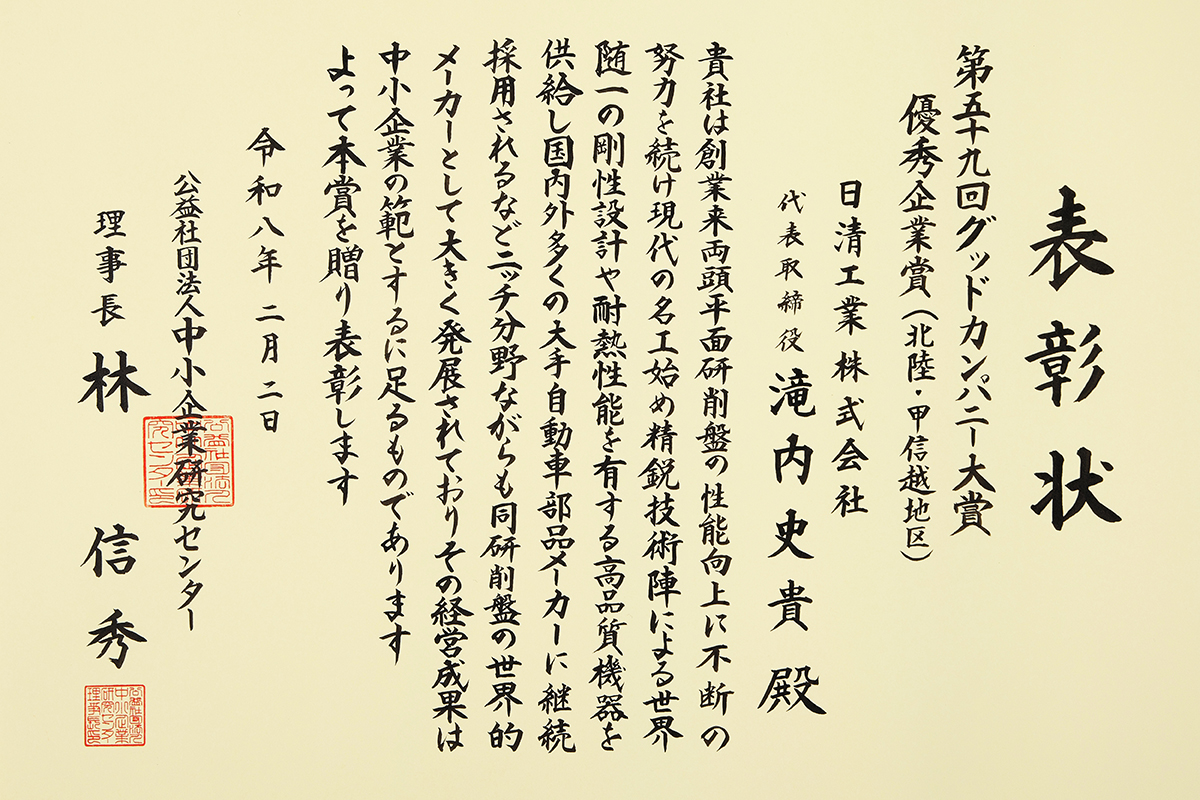 表彰状
第五十九回グッドカンパニー大賞
優秀企業賞（北陸・甲信越地区）
日清工業株式会社
代表取締役 滝内史貴 殿
貴社は創業来両頭平面研削盤の性能向上に不断の
努力を続け現代の名工始め精鋭技術陣による世界
随一の剛性設計や耐熱性能を有する高品質機器を
供給し国内外多くの大手自動車部品メーカーに継続
採用されるなどニッチ分野ながらも同研削盤の世界的
メーカーとして大きく発展されておりその経営成果は
中小企業の範とするに足るものであります
よって本賞を贈り表彰します
令和八年二月二日
公益社団法人中小企業研究センター
理事長 林 信秀